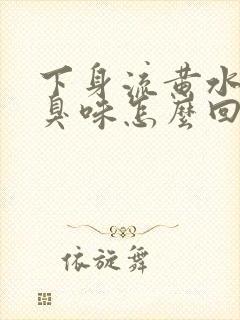 下身流黄水
臭味怎麼回
依旋舞